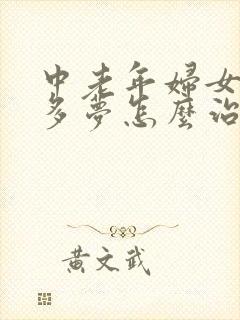 中老年婦女
多夢怎麼治
黃文武